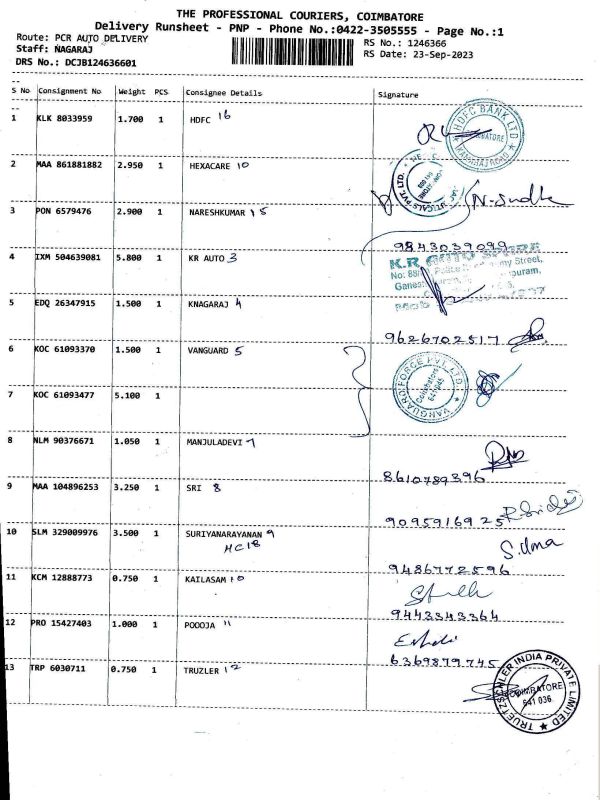 THE PROFESSIONAL COURIERS, COIMBATORE
Delivery Runsheet - PNP - Phone No.:0422-3505555 - Page No.:1
Route: PCR AUTO DELIVERY
RS No.: 1246366
Staff: NAGARAJ
RS Date: 23-Sep-2023
DRS No.: DCJB124636601
S No Consignment No Weight PCS Consignee Details Signature
1 KLK 8033959 1.700 1 HDFC 16
HDFC BANK LTD
2 MAA 861881882 2.950 1 HEXACARE 10
3 PON 6579476 2.900 1 NARESHKUMAR 15
N. Sudha
9843039099
4 IXM 504639081 5.800 1 KR AUTO 3
K.R AUTO SPARE
5 EDQ 26347915 1.500 1 KNAGARAJ 4
9626702517
6 KOC 61093370 1.500 1 VANGUARD 5
VANGUARD FORCE PVT. LTD.
Coimbatore
641045
7 KOC 61093477 5.100 1
8 NLM 90376671 1.050 1 MANJULADEVI 7
8610789396
9 MAA 104896253 3.250 1 SRI 8
9095916925
10 SLM 329009976 3.500 1 SURIYANARAYANAN 9
MC18
S. Uma
9486772596
11 KCM 12888773 0.750 1 KAILASAM 10
9443343364
12 PRO 15427403 1.000 1 POOOJA 11
6369879745
13 TRP 6030711 0.750 1 TRUZLER 12
TRUETZSCHLER INDIA PRIVATE LIMITED
COIMBATORE
641 036